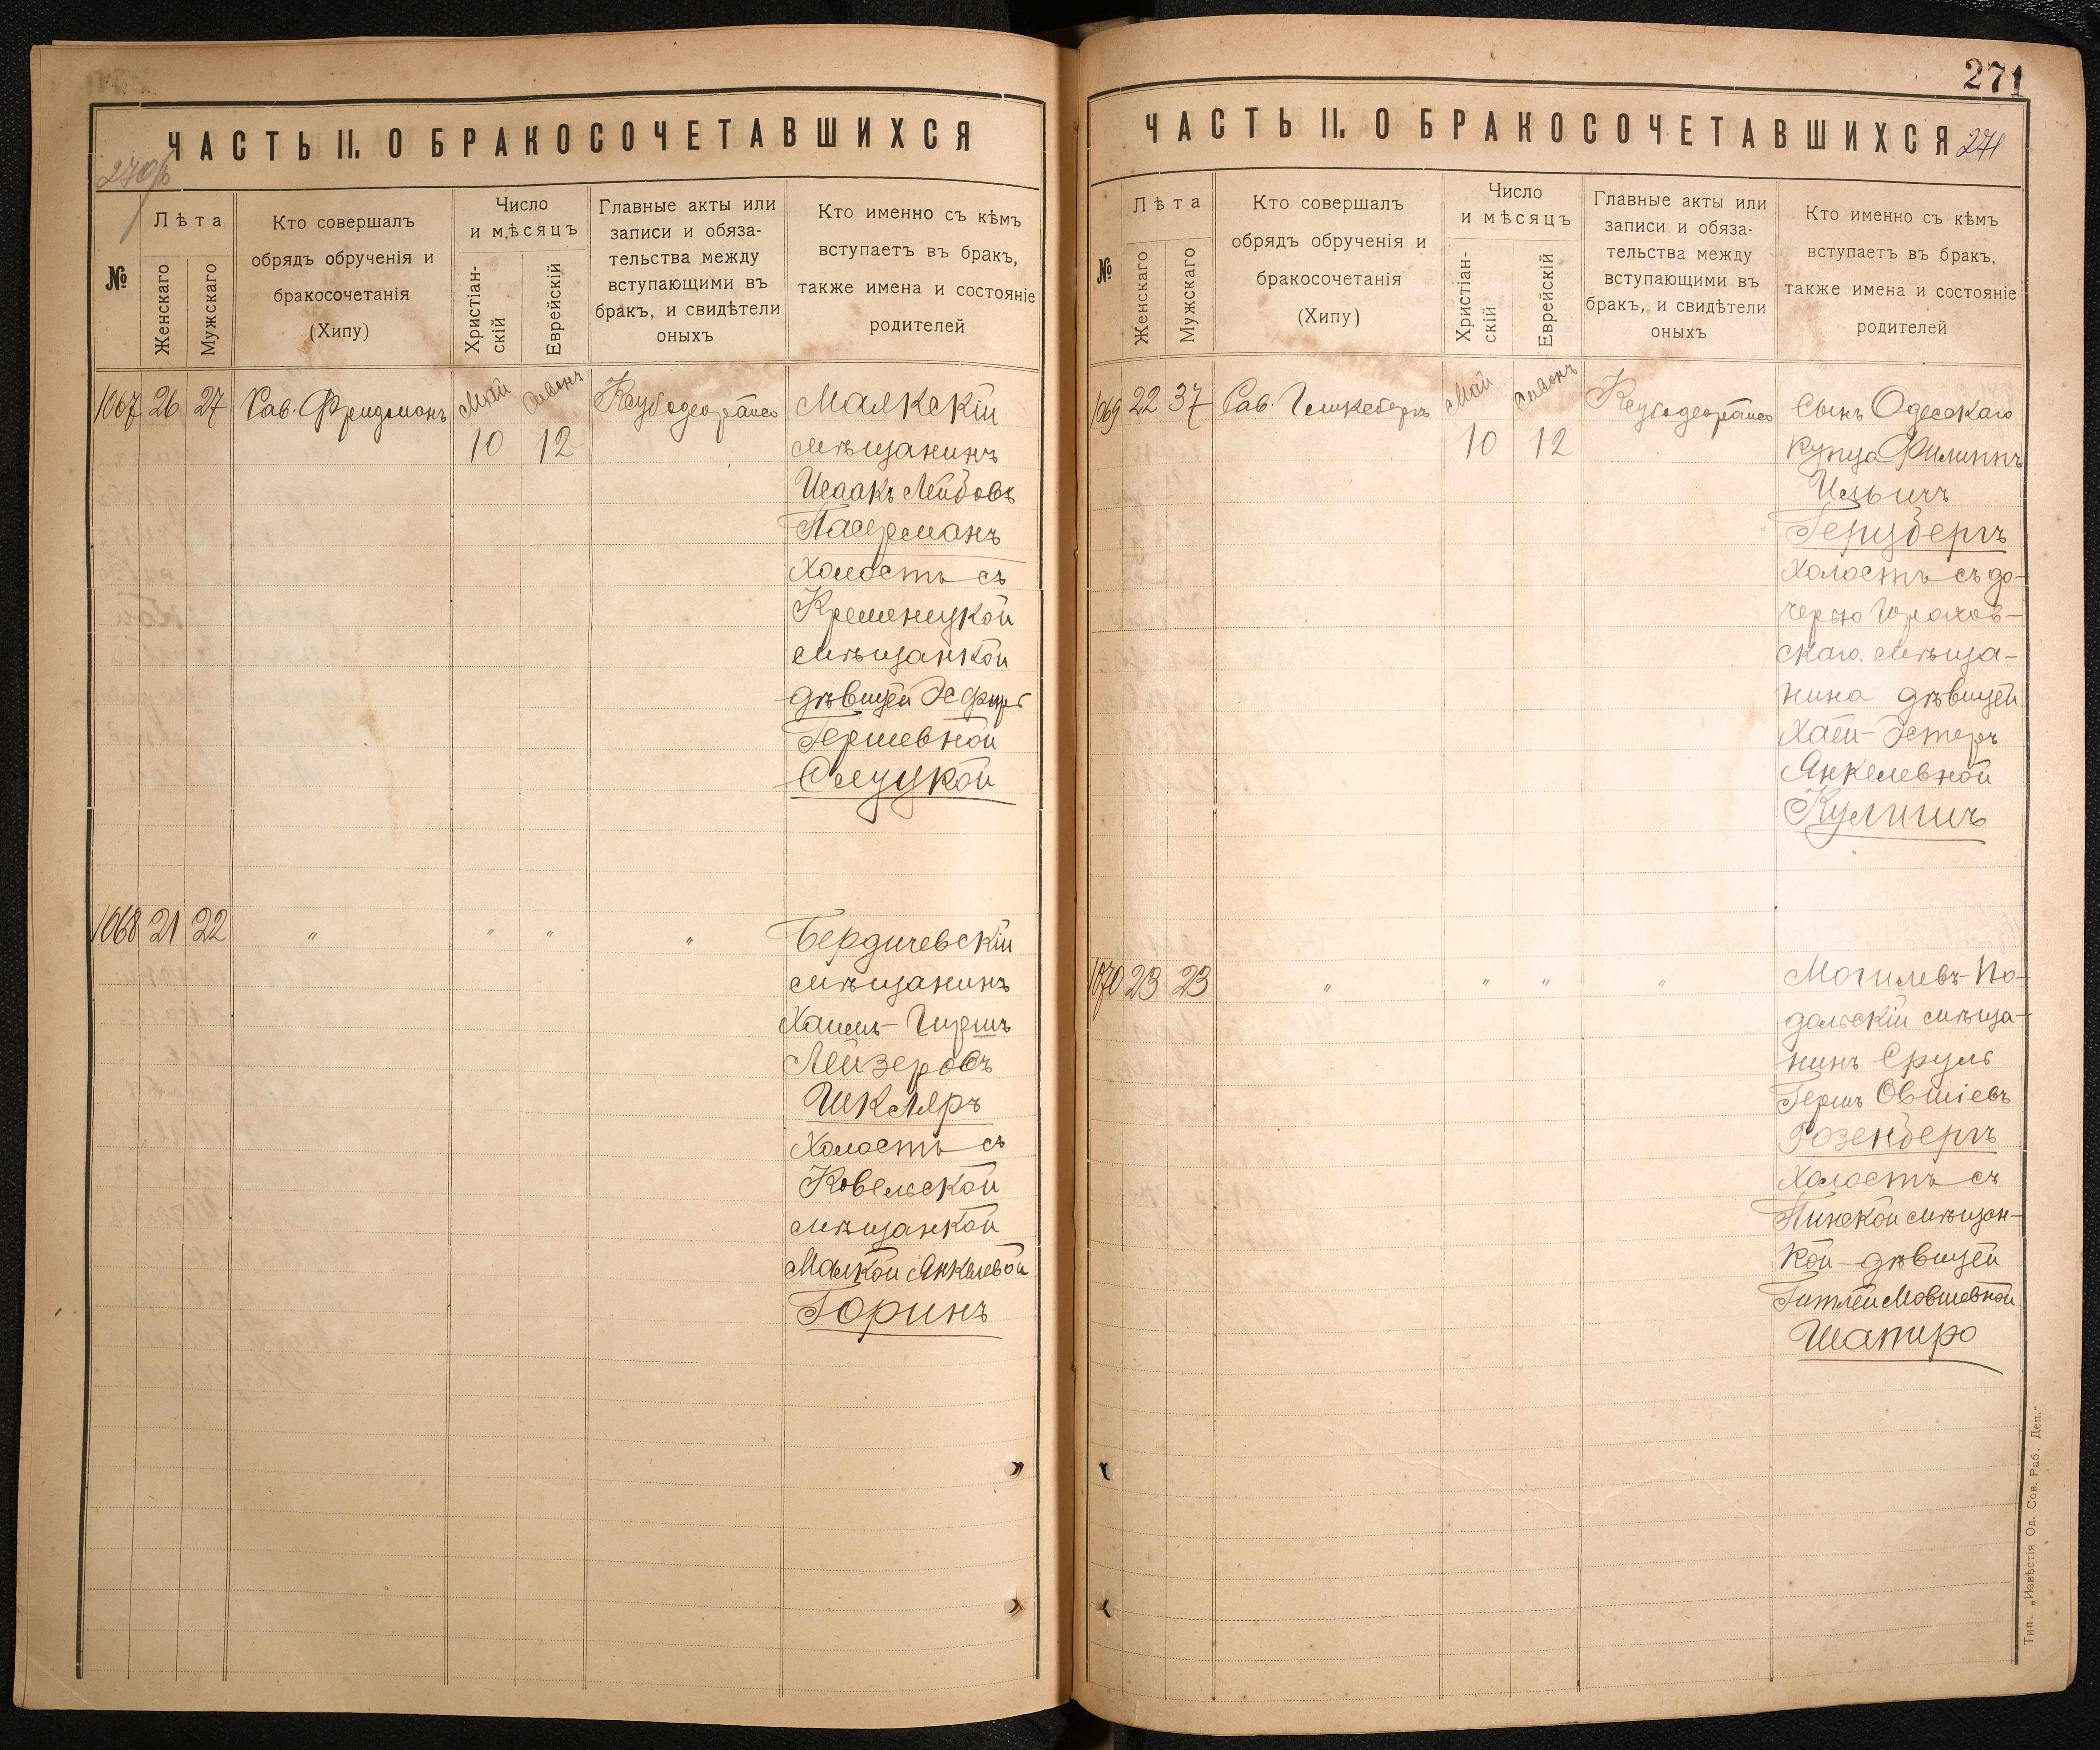 ЧАСТЬ II. О БРАКОСОЧЕТАВШИХСЯ
270 об
№
Лѣта
Женскаго
Мужскаго
Кто совершалъ
обрядъ обрученія и
бракосочетанія
(Хипу)
Число
и мѣсяцъ
Христіан-
скій
Еврейскій
Главные акты или
записи и обяза-
тельства между
вступающими въ
бракъ, и свидѣтели
оныхъ
Кто именно съ кѣмъ
вступаетъ въ бракъ,
также имена и состояніе
родителей
1067 26 27 Рав. Фридманъ Май 10 Сивонъ 12
мѣщанинъ
Исаакъ Лейбовъ
Пасерманъ
холостъ съ
Кременецкой
мѣщанкой
дѣвицей Эсфирь
Гершевной
Слуцкой
1068 21 22 " " " "
Бердичевскій
мѣщанинъ
Хаимъ-Гиршъ
Лейзеровъ
Шкляръ
холостъ съ
Ковельской
мѣщанкой
Малкой Янкелевой
Горинъ
271
ЧАСТЬ II. О БРАКОСОЧЕТАВШИХСЯ
271
№
Лѣта
Женскаго
Мужскаго
Кто совершалъ
обрядъ обрученія и
бракосочетанія
(Хипу)
Число
и мѣсяцъ
Христіан-
скій
Еврейскій
Главные акты или
записи и обяза-
тельства между
вступающими въ
бракъ, и свидѣтели
оныхъ
Кто именно съ кѣмъ
вступаетъ въ бракъ,
также имена и состояніе
родителей
1069 22 37 Рав. Май 10 Сивонъ 12
Сынъ Одесскаго
купца Филиппъ
Герцбергъ
холостъ съ до-
черью Горохов-
скаго мѣща-
нина дѣвицей
Хаей-Эстеръ
Янкелевной
Кулишъ
1070 23 23 " " " "
Могилевъ-По-
дольскій мѣща-
нинъ Сруль
Гершъ Овшіевъ
Розенбергъ
холостъ съ
Пинской мѣщан-
кой дѣвицей
Гитлей Мовшевной
Шапиро
Тип. „Извѣстія Од. Сов. Раб. Деп."